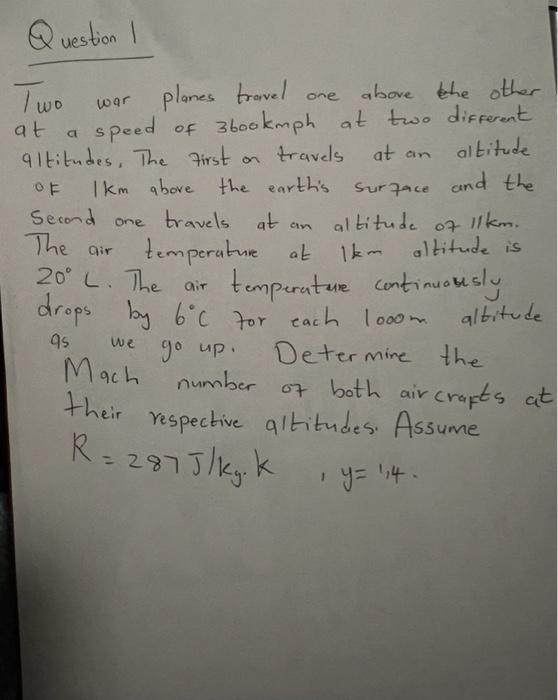 Question 1
Two war planes travel one above the other
at a speed of 3600kmph at two different
altitudes, The first on travels at an altitude
OF 1km above the earth's surface and the
Second one travels at an altitude of 11km.
The air temperature at 1km altitude is
20° C. The air temperature continuously
drops by 6°C for each 1000m altitude
as we go up. Determine the
Mach number of both aircrafts at
their respective altitudes. Assume
R = 287 J/kg.k , y= 1,4.